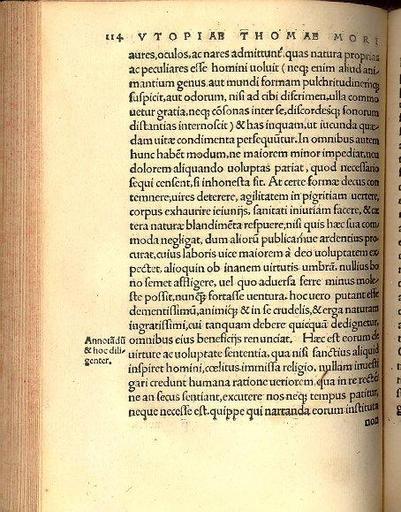 114 VTOPIAE THOMAE MORI
aures, oculos, ac nares admittunt, quas natura proprias
ac peculiares esse homini uoluit (neq; enim aliud ani-
mantium genus, aut mundi formam pulchritudinemq;
suspicit, aut odorum, nisi ad cibi discrimen, ulla commo
uetur gratia, neq; cõsonas inter se, discordesq; sonorum
distantias internoscit) & has inquam, ut iucunda quæ-
dam uitæ condimenta persequũtur. In omnibus autem
hunc habẽt modum, ne maiorem minor impediat, neu
dolorem aliquando uoluptas pariat, quod necessario
sequi censent, si inhonesta sit. At certe formæ decus con
temnere, uires deterere, agilitatem in pigritiam uertere,
corpus exhaurire ieiunijs, sanitati iniuriam facere, & cæ
tera naturæ blandimẽta respuere, nisi quis hæc sua com
moda negligat, dum aliorũ publicamue ardentius pro
curat, cuius laboris uice maiorem à deo uoluptatem ex
pectet, alioquin ob inanem uirtutis umbrã, nullius bo
no semet affligere, uel quo aduersa ferre minus mole-
ste possit, nunq̃ fortasse uentura, hoc uero putant esse
dementissimũ, animiq; & in se crudelis, & erga naturam
ingratissimi, cui tanquam debere quicq̃ dedignetur,
omnibus eius beneficijs renunciat. Hæc est eorum de
uirtute ac uoluptate sententia, qua nisi sanctius aliquid
inspiret homini, cœlitus immissa religio, nullam inuesti
gari credunt humana ratione ueriorem, qua in re rectẽ
ne an secus sentiant, excutere nos neq; tempus patitur,
neque necesse est. quippe qui narranda eorum instituta
non
Annotãdũ
& hoc dili
genter.